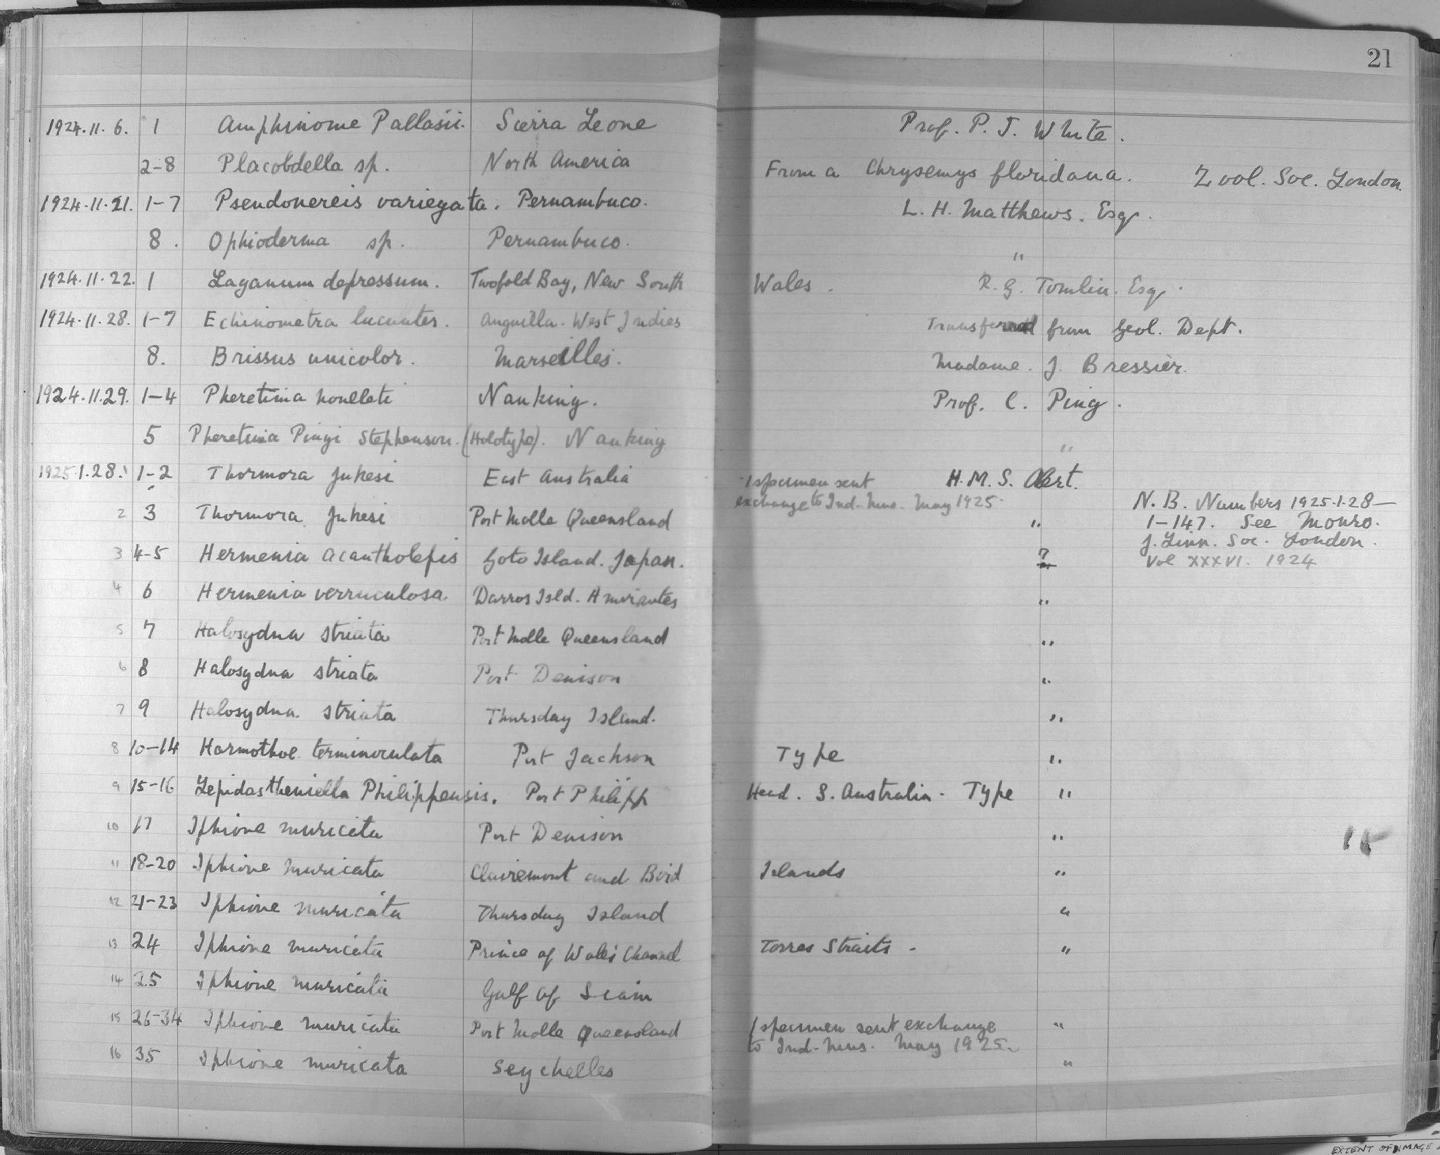 21
1924.11.6. 1 Amphinome Pallasii. Sierra Leone Prof. P. J. White.
2-8 Placobdella sp. North America From a Chrysemys floridana. Zool. Soc. London
1924.11.21. 1-7 Pseudonereis variegata. Pernambuco. L. H. Matthews. Esq.
8. Ophioderma sp. Pernambuco. "
1924.11.22. 1 Laganum depressum. Twofold Bay, New South Wales. R. G. Tomlin. Esq.
1924.11.28. 1-7 Echinometra lucunter. Anguilla. West Indies Transferred from Geol. Dept.
8. Brissus unicolor. Marseilles. Madame. J. Bressier.
1924.11.29. 1-4 Pheretima houlleti Nanking. Prof. C. Ping.
5 Pheretima Pingi Stephenson. (Holotype). Nanking "
1925.1.28. 1-2 Thormora Jukesi East Australia 1 specimen sent H.M.S. Alert.
exchange to Ind. Mus. May 1925. N.B. Numbers 1925.1.28—
2 3 Thormora Jukesi Port Molle Queensland " 1-147. See Monro.
J. Linn. Soc. London.
3 4-5 Hermenia acantholepis Goto Island. Japan. ? Vol XXXVI. 1924
4 6 Hermenia verruculosa Darros Isld. Amirantes "
5 7 Halosydna striata Port Molle Queensland "
6 8 Halosydna striata Port Denison "
7 9 Halosydna striata Thursday Island. "
8 10-14 Harmothoe terminoculata Port Jackson Type "
9 15-16 Lepidastheniella Philippensis. Port Philipp Head. S. Australia. Type "
10 17 Iphione muricata Port Denison "
11 18-20 Iphione muricata Clairemont and Bird Islands "
12 21-23 Iphione muricata Thursday Island "
13 24 Iphione muricata Prince of Wales Channel Torres Straits - "
14 25 Iphione muricata Gulf of Siam
15 26-34 Iphione muricata Port Molle Queensland 1 specimen sent exchange "
to Ind. Mus. May 1925.
16 35 Iphione muricata Seychelles "
EXTENT OF IMAGE